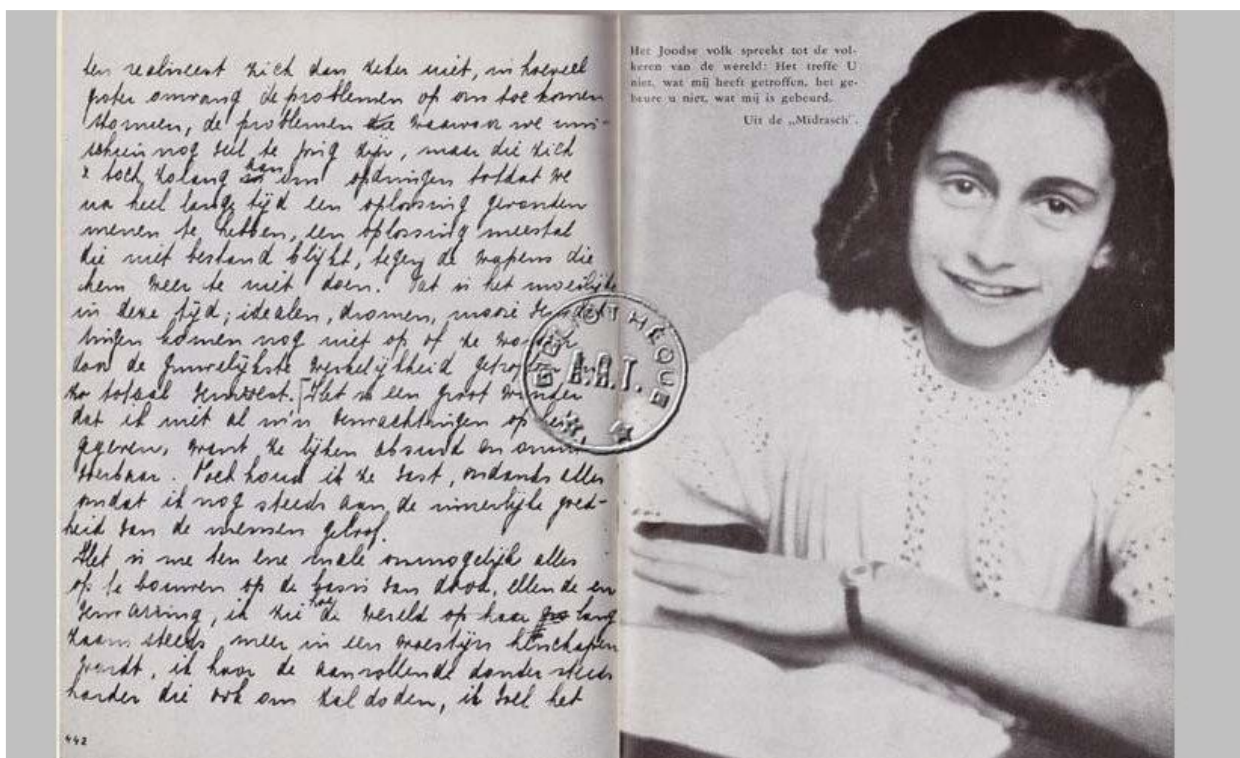 ten realiseert zich dan zeker niet, in hoeveel
groter omvang de problemen op ons toe komen
stormen, de problemen die waarvoor we mis-
schien nog veel te jong zijn, maar die zich
toch zolang aan ons opdringen totdat we
na heel lange tijd een oplossing gevonden
menen te hebben, een oplossing meestal
die niet bestand blijkt, tegen de wapens die
hem weer te niet doen. Dat is het moeilijke
in deze tijd; idealen, dromen, mooie
komen nog niet op of ze
door de gruwelijkste werkelijkheid
zo totaal verwoest. Het is een groot wonder
dat ik niet al m'n verwachtingen op
gegeven, want ze lijken absurd en
Toch houd ik ze vast, ondanks alles
omdat ik nog steeds aan de innerlijke goed-
heid van de mensen geloof.
Het is me ten ene male onmogelijk alles
op te bouwen op de basis van dood, ellende en
verwarring, ik zie hoe de wereld op haar lang
zaam steeds meer in een woestijn herschapen
wordt, ik hoor de aanrollende donder steeds
harder die ook ons zal doden, ik voel het
442
Het Joodse volk spreekt tot de vol-
keren van de wereld: Het treffe U
niet, wat mij heeft getroffen, het ge-
beure u niet, wat mij is gebeurd.
Uit de „Midrasch".
BIBLIOTHÈQUE
A.A.I.